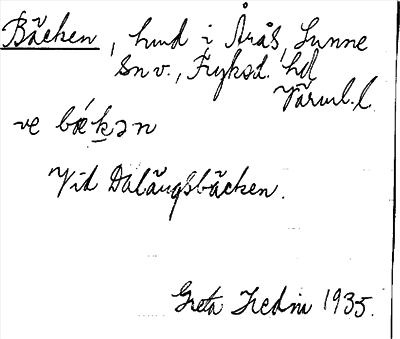 Bäcken, hmd i Årås, Sunne
sn v., Fryksd. hd
Värml. l.
ve bǽkən
Vid Dalängsbäcken.
Greta Hedin 1935.